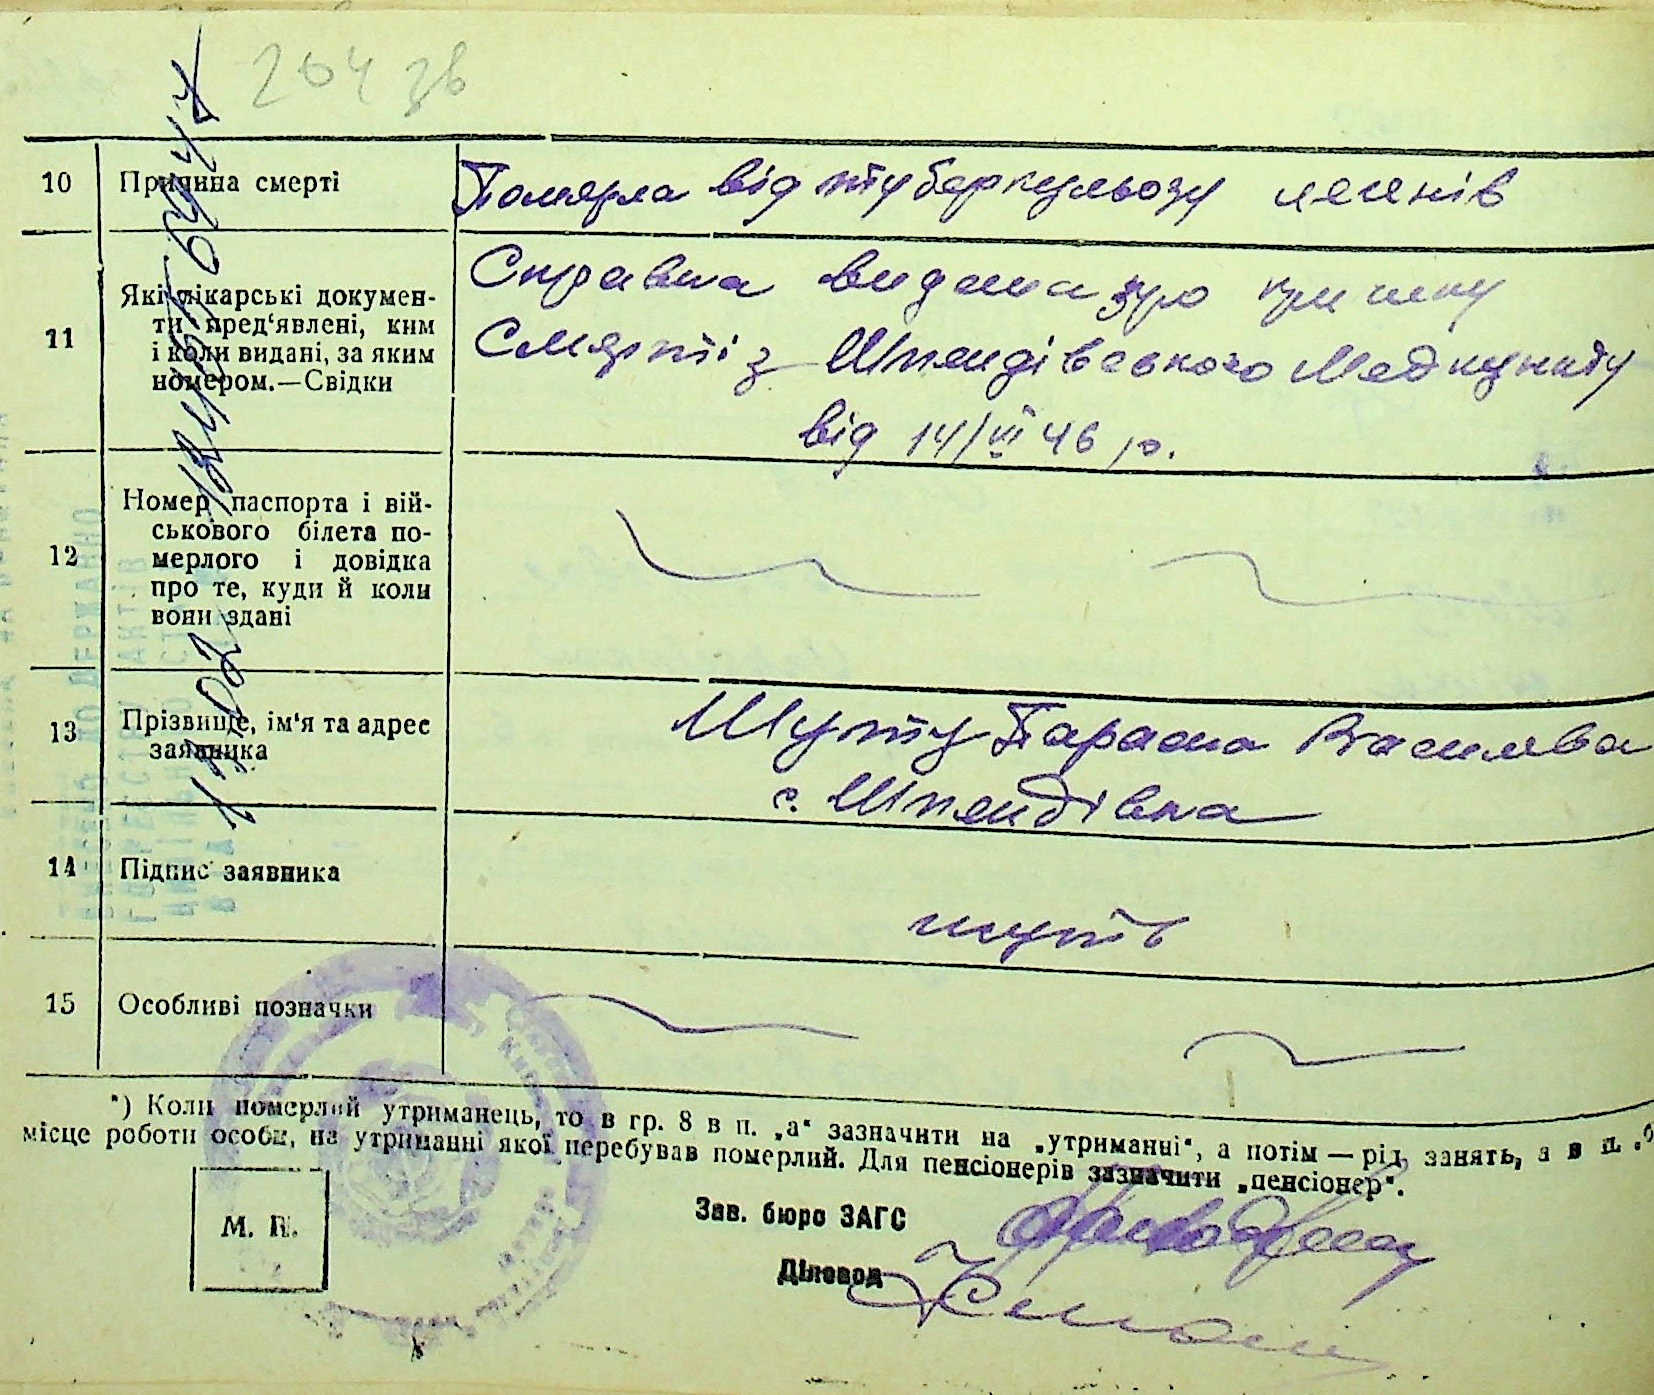 204 зв
10 Причина смерті Померла від туберкульозу легенів
11 Які лікарські докумен-
ти пред'явлені, ким
і коли видані, за яким
номером.—Свідки
Справка видана про причину
Смерті з Шпендівського Медпункту
від 14/VI 46 р.
12 Номер паспорта і вій-
ськового білета по-
мерлого і довідка
про те, куди й коли
вони здані
13 Прізвище, ім'я та адрес
заявника
Шупту Параска Василева
с. Шпендівка
14 Підпис заявника
15 Особливі позначки
*) Коли померлий утриманець, то в гр. 8 в п. „а“ зазначити на „утриманні“, а потім — рід занять, а в п. „б
місце роботи особи, на утриманні якої перебував померлий. Для пенсіонерів зазначити „пенсіонер“.
М. П.
Зав. бюро ЗАГС
Діловод